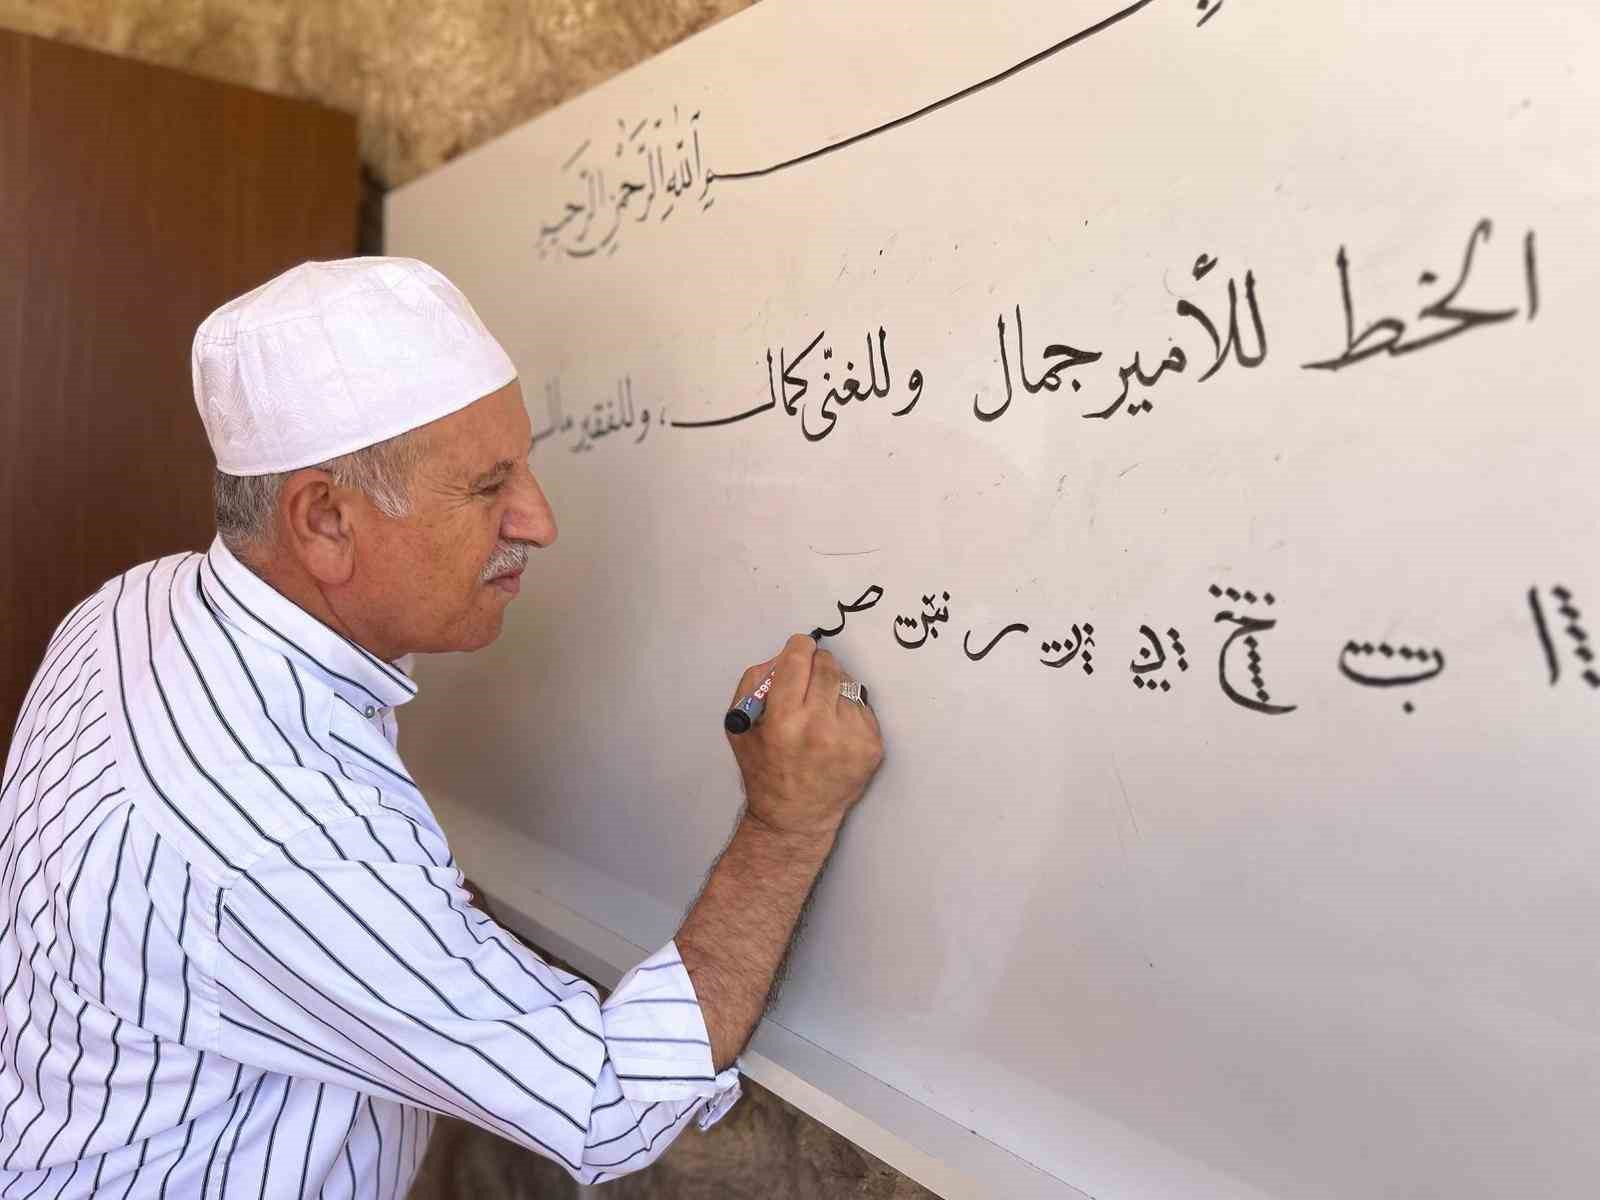 بِسْمِ اللّٰهِ الرَّحْمٰنِ الرَّحِيمِ
الخط للأمير جمال وللغنّى كمال ، وللفقير مال
ا ب ح د ر س ص